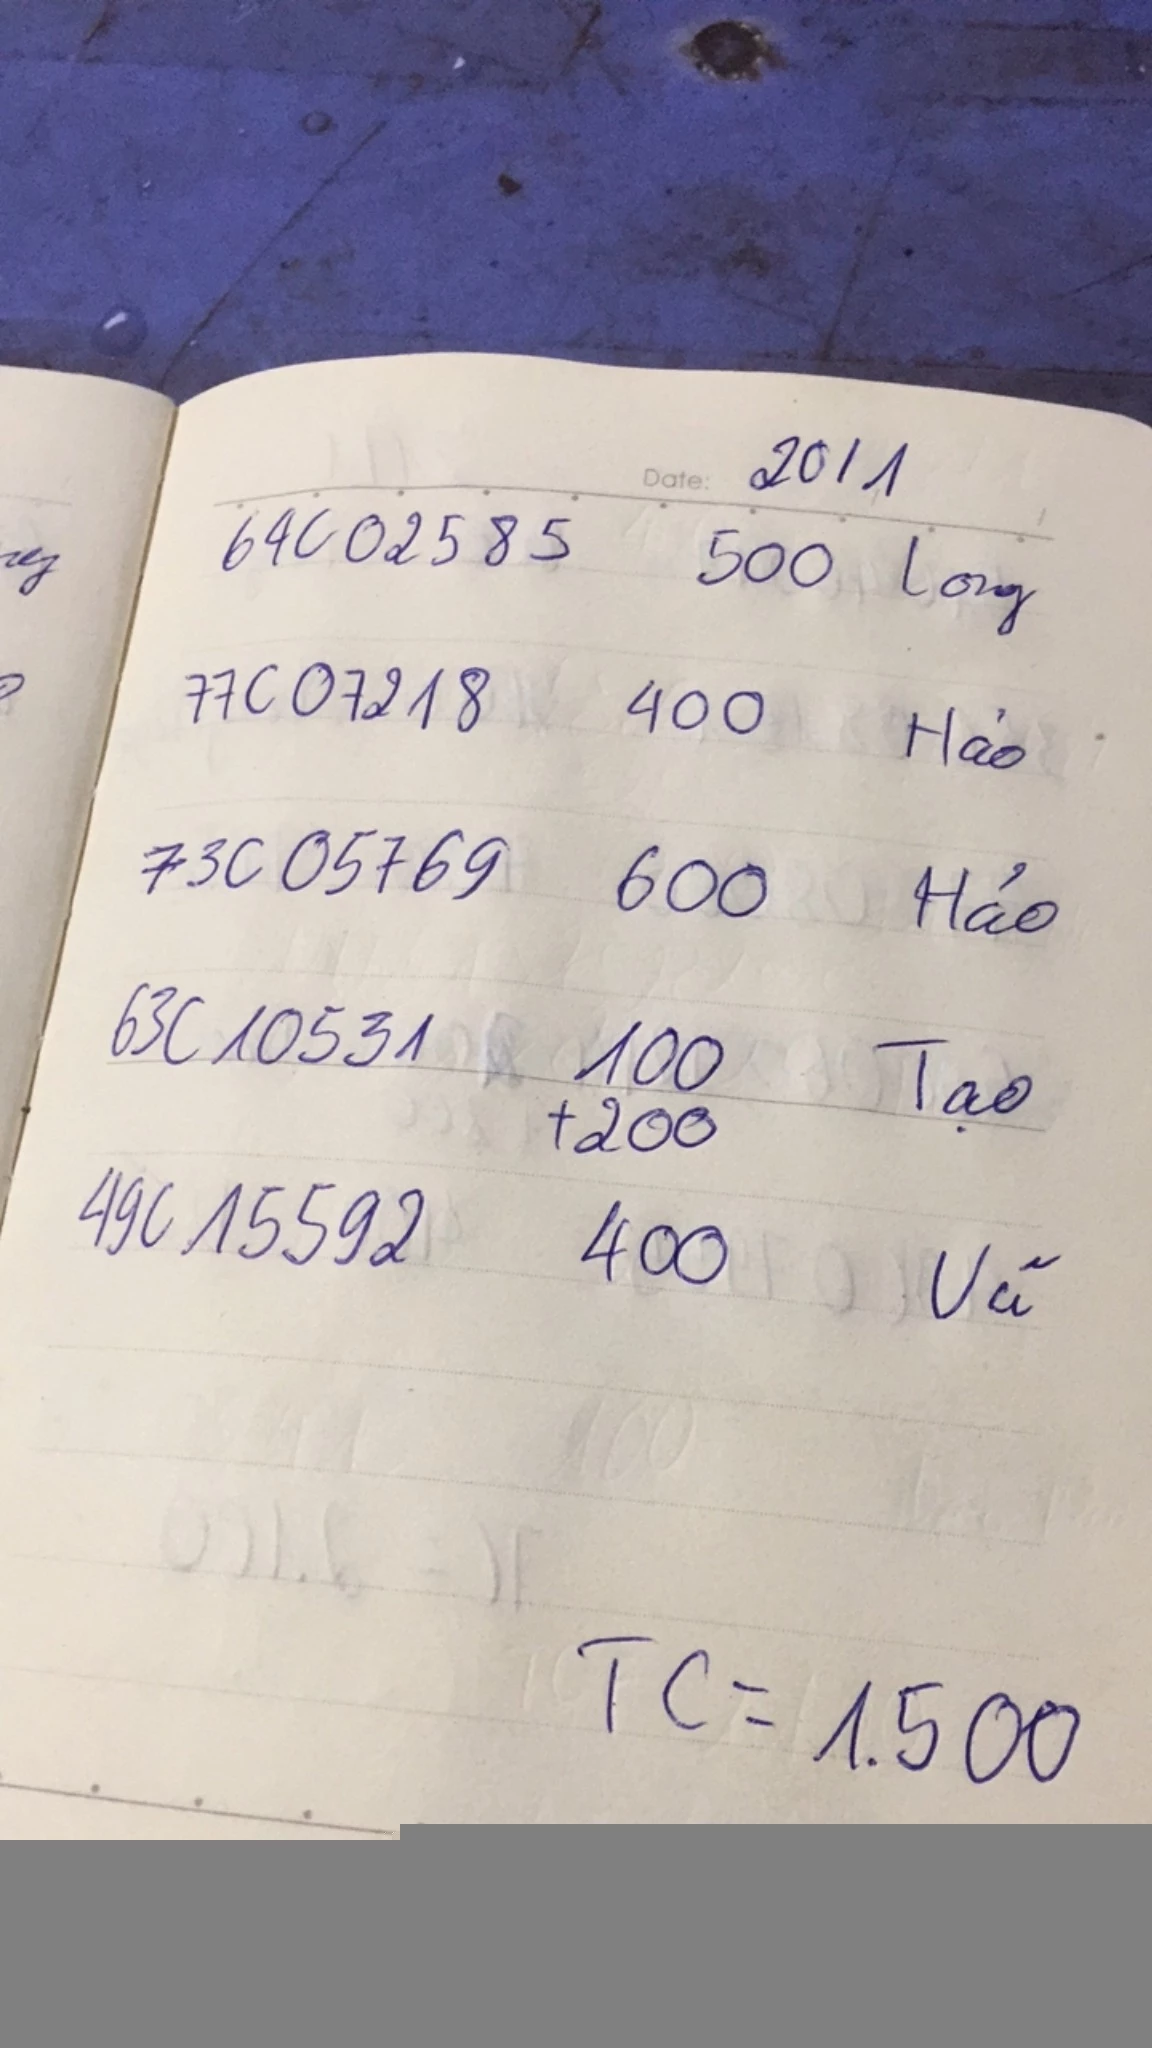 Date: 20/1
64C02585 500 Long
77C07218 400 Hảo
73C05769 600 Hảo
63C10531 100 Tạo
+200
49C15592 400 Vũ
TC = 1.500